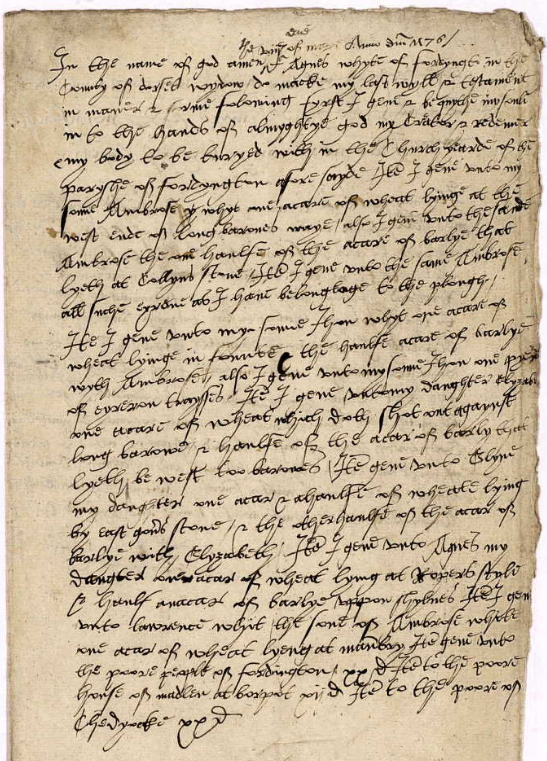 ye viijth of maye Anno dm 1576
In the name of god amen I Agnes whyte of fordyngto in the
County of dorset wydow do macke my last wyll & testament
in maner & forme folowing fyrst I geve & bequethe my soule
in to the hands of almyghtye god my Creator & redemer
my body to be buryed with in the Churchyearde of the
paryshe of fordyngton afore sayde Ite I geve unto my
sonne Ambrose whyt one acare of wheat lyinge at the
west ende of long barowes waye also I geve unto the saide
Ambrose the one haulfe of the acare of barlye that
lyeth at Collyns stone Ite I geve unto the same Ambrose
all suche eyrone as I have belongeage to the plough
Ite I geve unto my sonne Jhon whyt one acare of
wheat lyinge in the haulfe acare of barlye
wyth Ambrose also I geve unto my sonne Jhon one
of eyreron traysses Ite I geve unto my daughter Elyzabe
one acare of wheat which doth shot out against
long barowe & haulfe of the acar of barly that
lyeth be west too barowes Ite geve unto Elyne
my daughter one acar & a haulfe of wheate lying
by east stone & the other haulfe of the acar of
barlye with Elyzabeth Ite I geve unto Agnes my
daughter one acar of wheat lying at Ropers style
& haulf an acar of barlye uppon shylves Ite I geve
unto lawrence whyt the sone of Ambrose white
one acar of wheat lyeng at manbry Ite geve unto
the poore people of fordington xx d Ite to the poore
house of madlen at borpot xij d Ite to the poore of
Chedyocke xx d